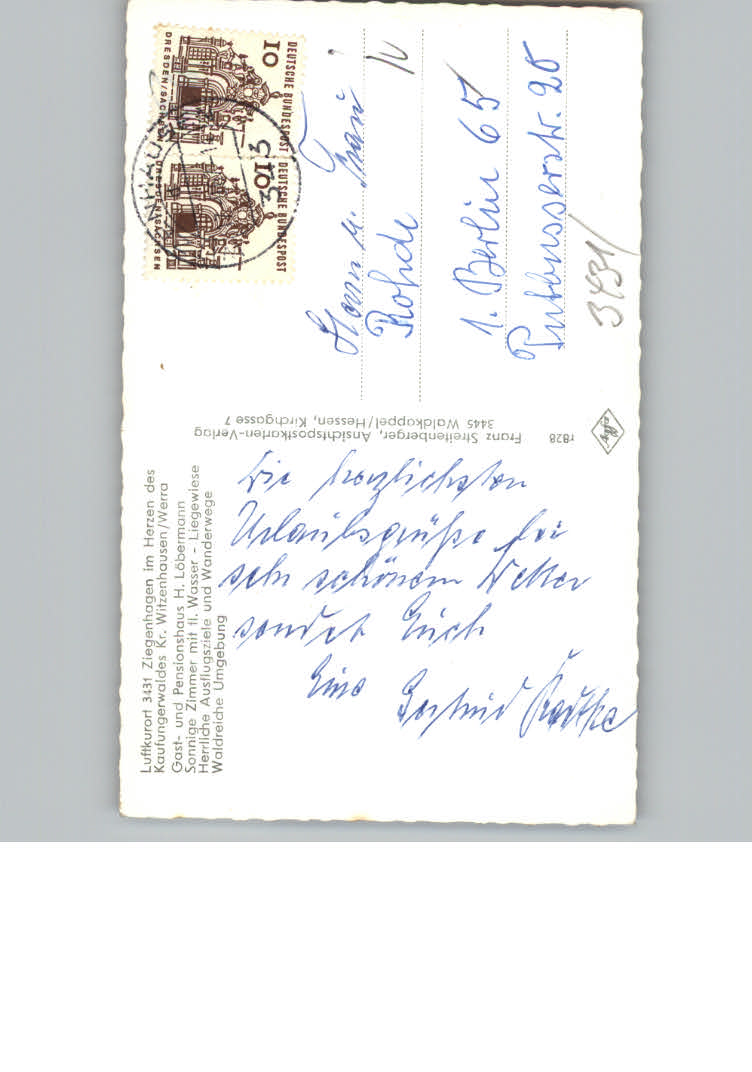 Luftkurort 3431 Ziegenhagen im Herzen des
Kaufungerwaldes Kr. Witzenhausen/Werra
Gast- und Pensionshaus H. Löbermann
Sonnige Zimmer mit fl. Wasser - Liegewiese
Herrliche Ausflugsziele und Wanderwege
Waldreiche Umgebung
Die herzlichsten
Urlaubsgrüße bei
sehr schönem Wetter
sendet Euch
Eure Gertrud Radtke
r828 Franz Streitenberger, Ansichtspostkarten-Verlag
3445 Waldkappel/Hessen, Kirchgasse 7
DEUTSCHE BUNDESPOST
10
DRESDEN/SACHSEN
DEUTSCHE BUNDESPOST
10
DRESDEN/SACHSEN
343
Herrn u. Frau
Rohde
1. Berlin 65
Putbusserstr. 20
3431/